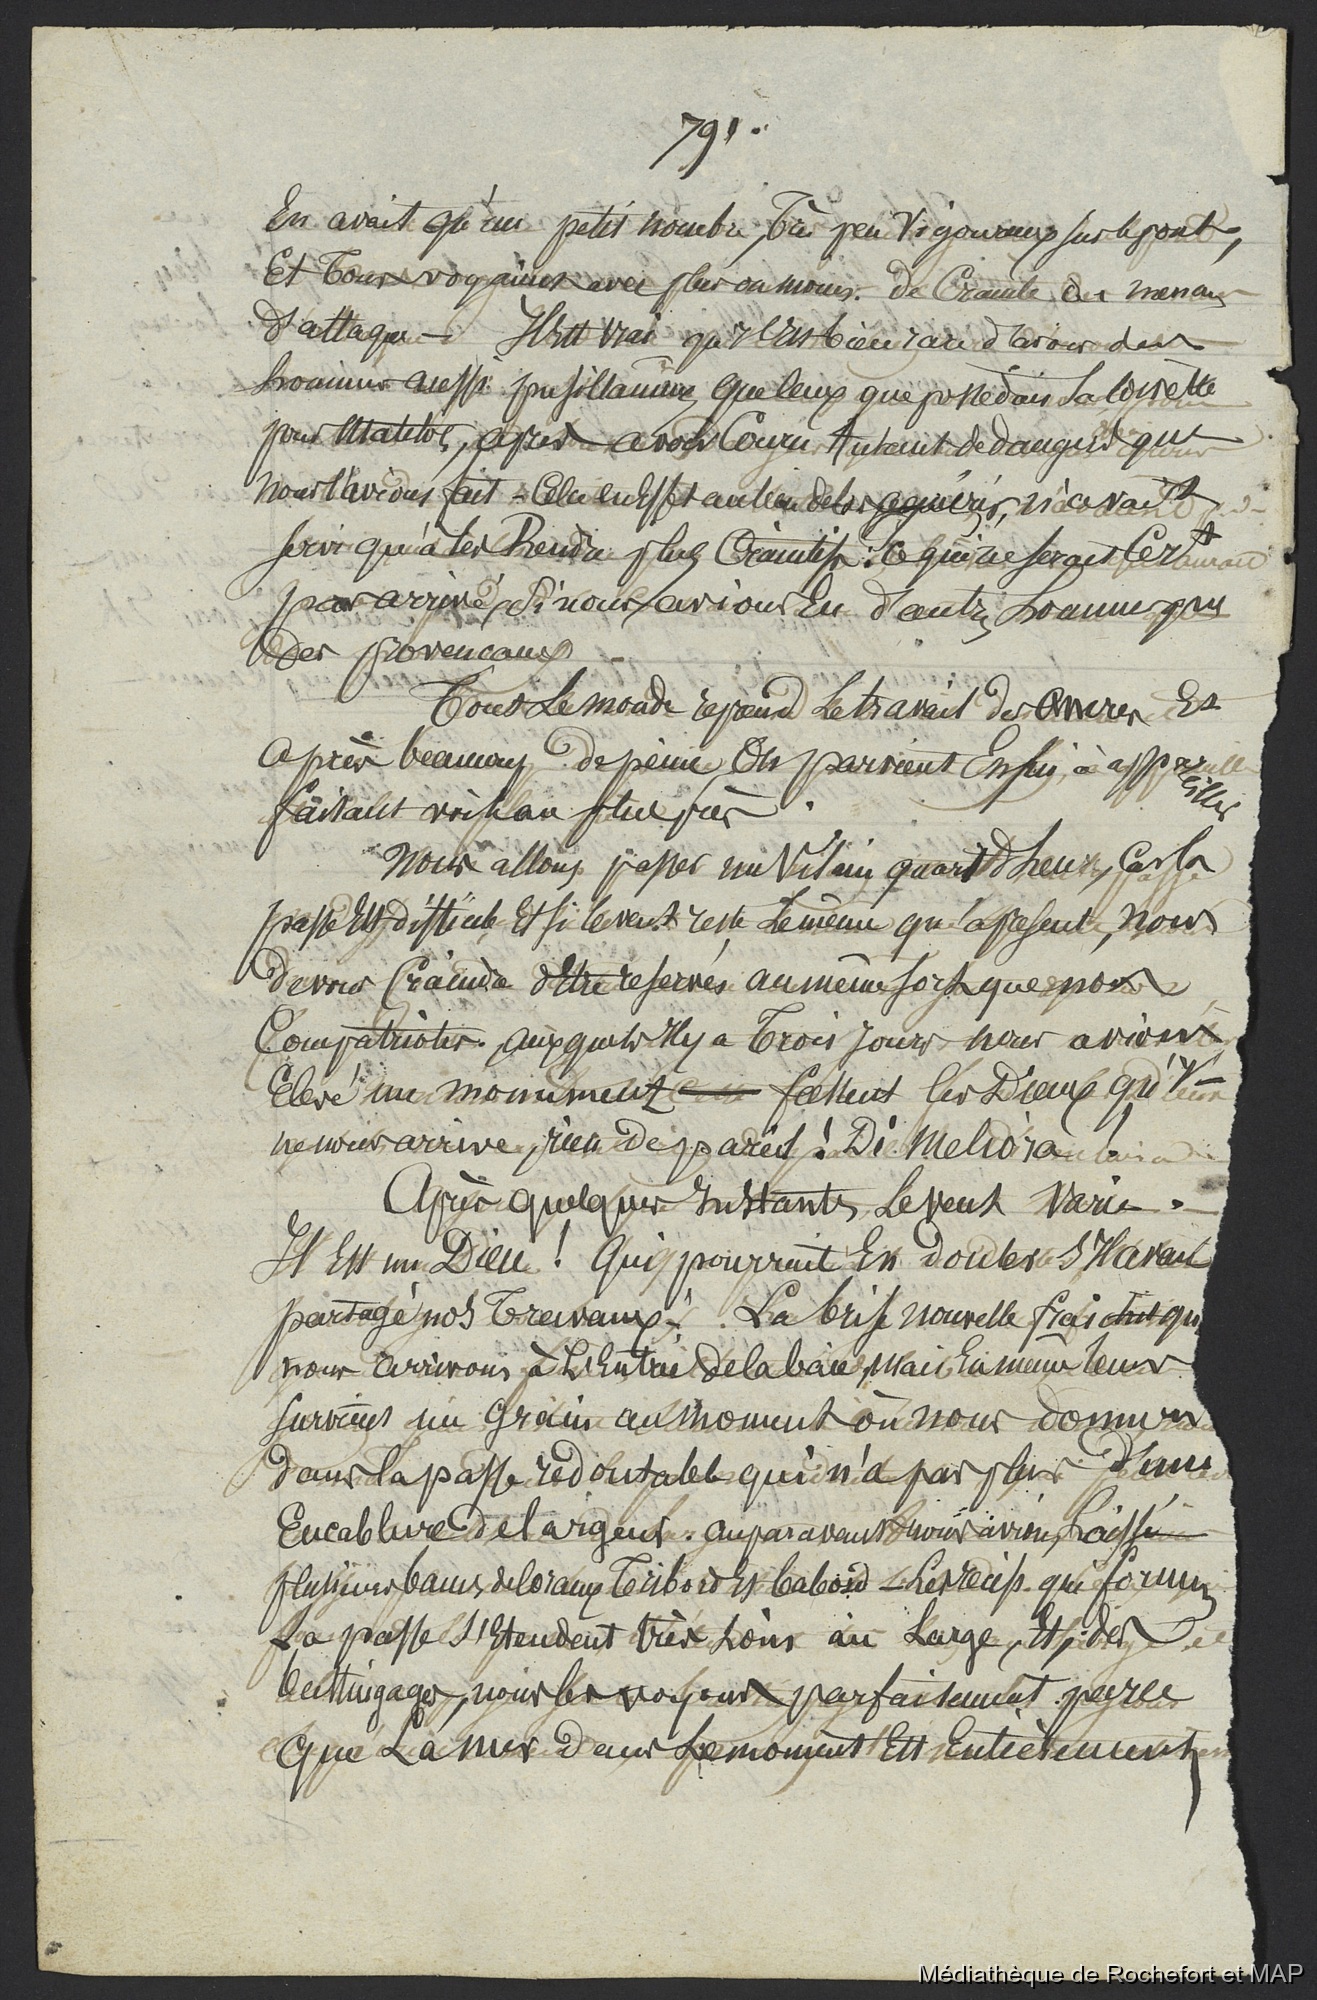 791.
En avait qu'un petit nombre, Très peu Vigoureux sur le pont,
Et Tous voyaient avec plus ou moins de Crainte Ces menaces
d'attaque - Il Est vrai qu'il Est bien rare d'avoir des
hommes aussi pusillanimes que Ceux que possédais La Coirette
pour Matelots, après avoir Couru Autant de dangers que
nous l'avions fait - Cela en Effet au lieu de les aguérir, n'avait
servi qu'à les Rendre plus Craintifs : Ce qui ne serait Cert
pas arrivé, Si nous avions Eu d'autres hommes que
Des provencaux -
Tout Le monde reprend Le travail des ancres Et
Après beaucoup de peine On parvient Enfin à appareiller
faisant voile au plus près.
Nous allons passer un Vilain quart d'heure, Car la
passe Est difficile, Et si le vent reste Le même qu'a présent, nous
devons Craindre d'Etre reservés au même sort que nos
Compatriotes auxquels Il y a Trois jours nous avions
Elevé un monument fassent les Dieux qu'Il
ne nous arrive rien de pareil ! Di Meliora !
Après quelques Instants Le vent Varie.
Il Est un Dieu ! Qui pourrait En douter S'Il avait
partagé nos Travaux ! La brise nouvelle fraichit que
nous arrivons à L'Entrée de la baie, mais En même tems
survient un grain au moment où nous donnons
dans la passe redoutable qui n'a pas plus D'une
Encablure de largeur. auparavant nous avions Laissé
plusieurs bancs de Coraux Tribord Et babord - Les récifs qui forment
La passe S'Etendent très Loin au Large, Et des
bastingages, nous les voyons parfaitement parce
Que La mer dans Ce moment Est Entièrement
Médiathèque de Rochefort et MAP